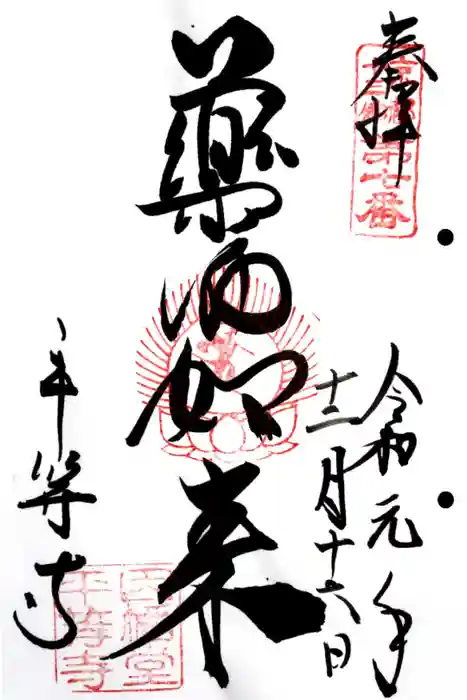 奉拝
第七番
令和元年
十二月十六日
藥師如来
平等寺
因幡堂
平等寺